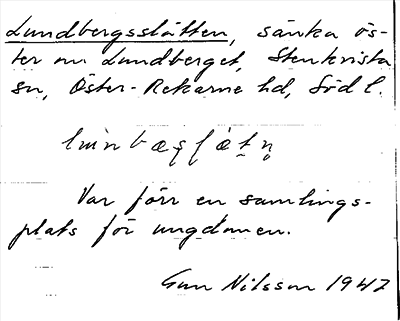 Lundbergsslätten, sänka ös-
ter om Lundberget, Stenkvista
sn, Öster-Rekarne hd, Södl.
Var förr en samlings-
plats för ungdomen.
Gun Nilsson 1947